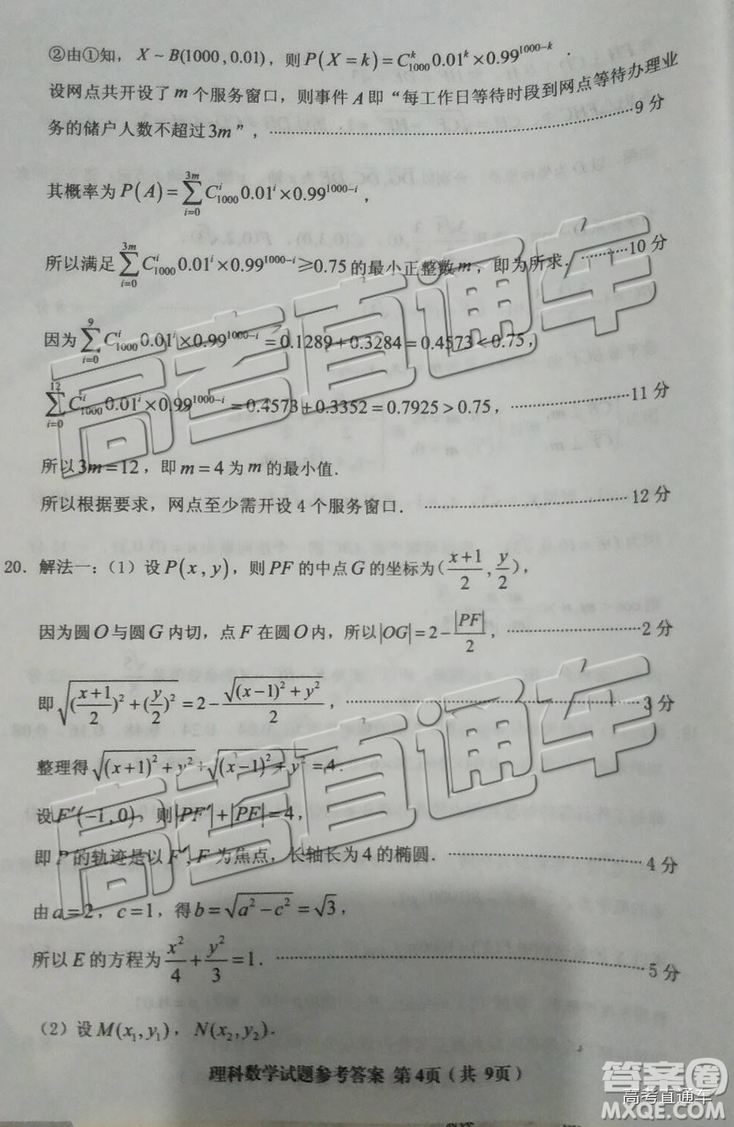 ②由①知，X~B(1000,0.01)，则P(X=k)=C_{1000}^{k}0.01^{k}×0.99^{1000-k}.
设网点共开设了m个服务窗口，则事件A即“每工作日等待时段到网点等待办理业
务的储户人数不超过3m”，…………9分
其概率为P(A)=∑_{i=0}^{3m}C_{1000}^{i}0.01^{i}×0.99^{1000-i}，
所以满足∑_{i=0}^{3m}C_{1000}^{i}0.01^{i}×0.99^{1000-i}≥0.75的最小正整数m，即为所求.…………10分
因为∑_{i=0}^{9}C_{1000}^{i}0.01^{i}×0.99^{1000-i}=0.1289+0.3284=0.4573<0.75，
∑_{i=0}^{12}C_{1000}^{i}0.01^{i}×0.99^{1000-i}=0.4573+0.3352=0.7925>0.75，…………11分
所以3m=12，即m=4为m的最小值.
所以根据要求，网点至少需开设4个服务窗口.…………12分
20. 解法一：(1) 设P(x,y)，则PF的中点G的坐标为(\frac{x+1}{2},\frac{y}{2})，
因为圆O与圆G内切，点F在圆O内，所以|OG|=2-\frac{|PF|}{2}，…………2分
即\sqrt{(\frac{x+1}{2})^2+(\frac{y}{2})^2}=2-\frac{\sqrt{(x-1)^2+y^2}}{2}，…………3分
整理得\sqrt{(x+1)^2+y^2}+\sqrt{(x-1)^2+y^2}=4.
设F′(-1,0)，则|PF′|+|PF|=4，
即P的轨迹是以F′，F为焦点，长轴长为4的椭圆.…………4分
由a=2，c=1，得b=\sqrt{a^2-c^2}=\sqrt{3}，
所以E的方程为\frac{x^2}{4}+\frac{y^2}{3}=1.…………5分
(2) 设M(x_1,y_1)，N(x_2,y_2).
理科数学试题参考答案 第4页（共 9页）
高考直通车
高考直通车
答案圈
高考直通车
MXQE.COM